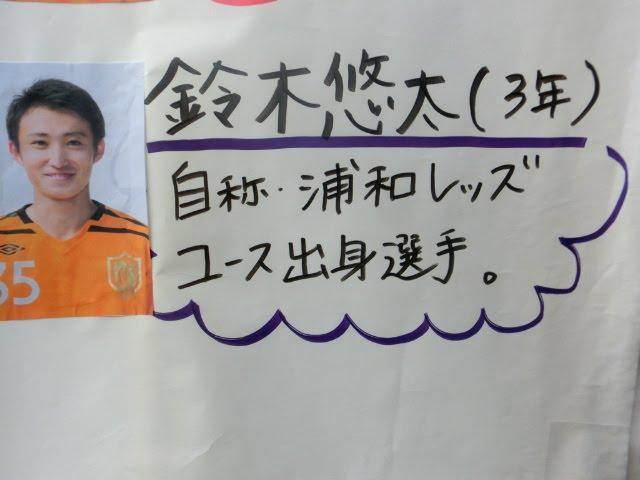 鈴木悠太(3年)
自称・浦和レッズ
ユース出身選手。
35